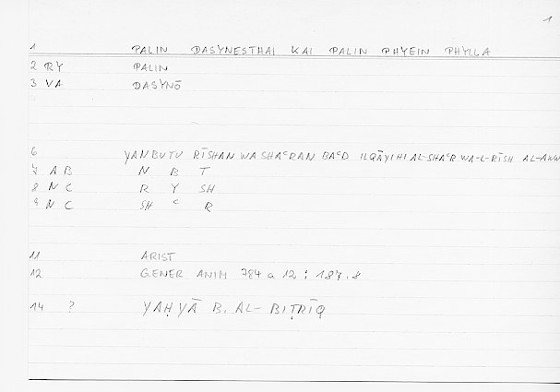 1
1 PALIN DASYNESTHAI KAI PALIN PHYEIN PHYLLA
2 RY PALIN
3 VA DASYNŌ
6 YANBUTU RĪSHAN WA SHAᶜRAN BAᶜD ILQĀYIHI AL-SHAᶜR WA-L-RĪSH AL-AWW
7 AB N B T
8 NC R Y SH
9 NC SH ᶜ R
11 ARIST
12 GENER ANIM 784 a 12 : 187.8
14 ? YAḤYĀ B. AL-BIṬRĪQ